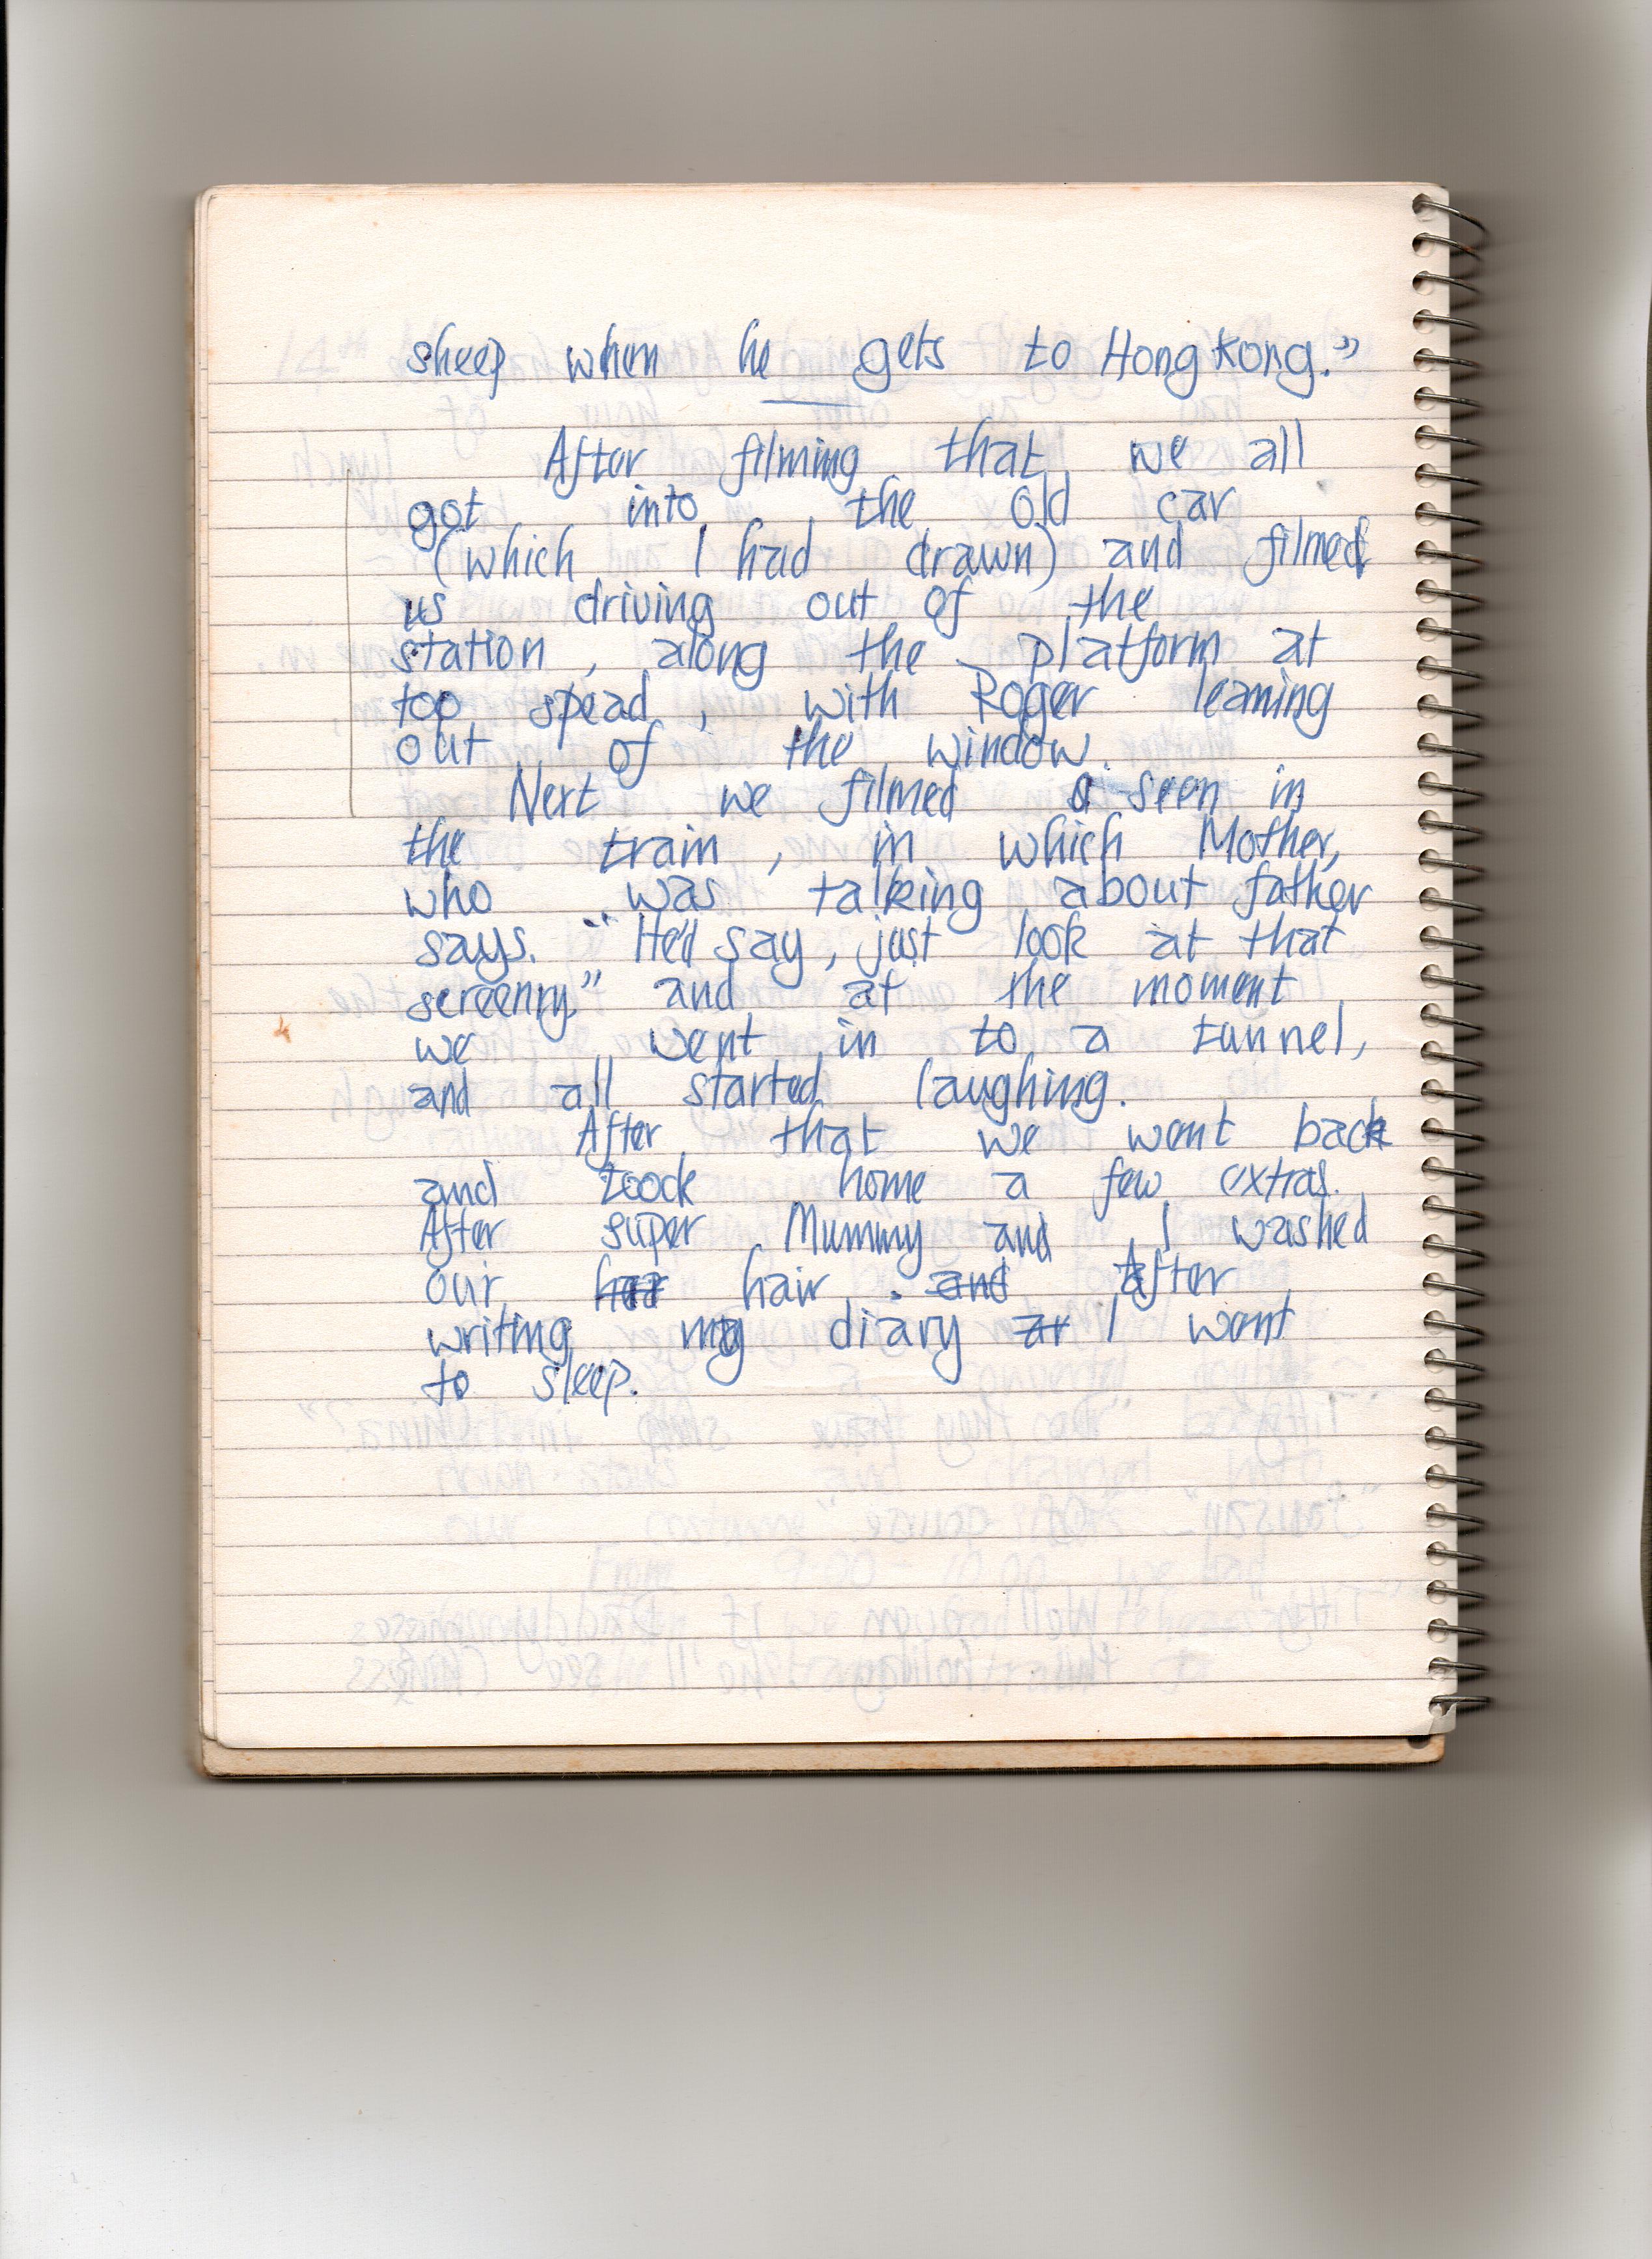 sheep when he gets to Hong Kong."
After filming that we all
got into the old car
(which I had drawn) and filmed
us driving out of the
station, along the platform at
top spead, with Roger leaning
out of the window.
Next we filmed a seen in
the train, in which Mother,
who was talking about father
says. "He'd say, just look at that
screenry," and at the moment
we went in to a tunnel,
and all started laughing.
After that we went back
and toock home a few extras.
After super Mummy and I washed
our har hair. and After
writing my diary ar I went
to sleep.